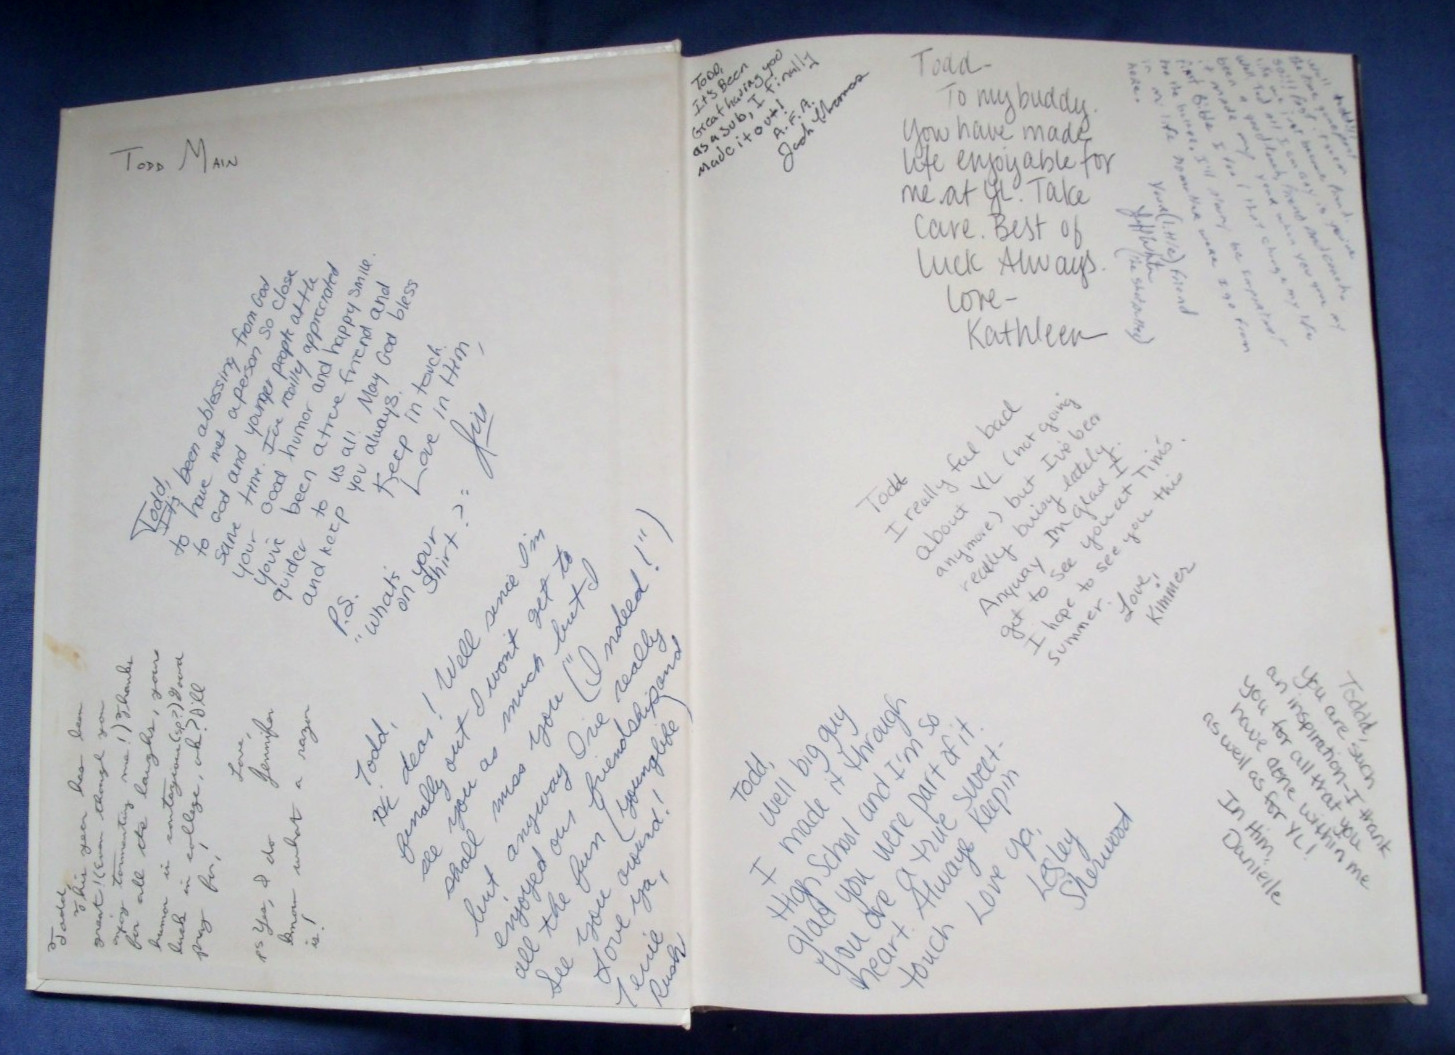 TODD MAIN
Todd,
It's been a blessing from God
to have met a person so close
to God and younger people at the
same time. I've really appreciated
your good humor and happy smile.
You've been a true friend and
guider to us all. May God bless
and keep you always.
Keep in touch.
Love in Him,
P.S.
"What's
on your
Shirt?"
Todd,
This year has been
great! (Even though you
enjoy tormenting me!) Thanks
for all the laughs, your
humor is contagious (sp?) Good
luck in college, ok? I'll
pray for,
Love,
Jennifer
PS Yes, I do
know what a razor
is!
Todd,
dear! Well since I'm
finally out I won't get to
see you as much but I
shall miss you ("Indeed!")
but anyway I've really
enjoyed our friendship and
all the fun (younglife)
See you around!
Love ya,
Rush
TODD,
It's Been
Great having you
as a sub, I finally
made it out!
A.F.A.
Josh Thomas
Todd-
To my buddy.
You have made
life enjoyable for
me at YL. Take
Care. Best of
luck Always.
Love-
Kathleen
Your (little) friend
Todd
I really feel bad
about YL (not going
anymore) but I've been
really busy lately.
Anyway I'm glad I
get to see you at Tim's.
I hope to see you this
summer.
Love,
Kimmer
Todd,
Well big guy
I made it through
High School and I'm so
glad you were part of it.
You are a true sweet-
heart. Always keep in
touch Love Ya,
Lesley
Sherwood
Todd,
you are such
an inspiration-I thank
you for all that you
have done within me
as well as for YL!
In Him,
Danielle